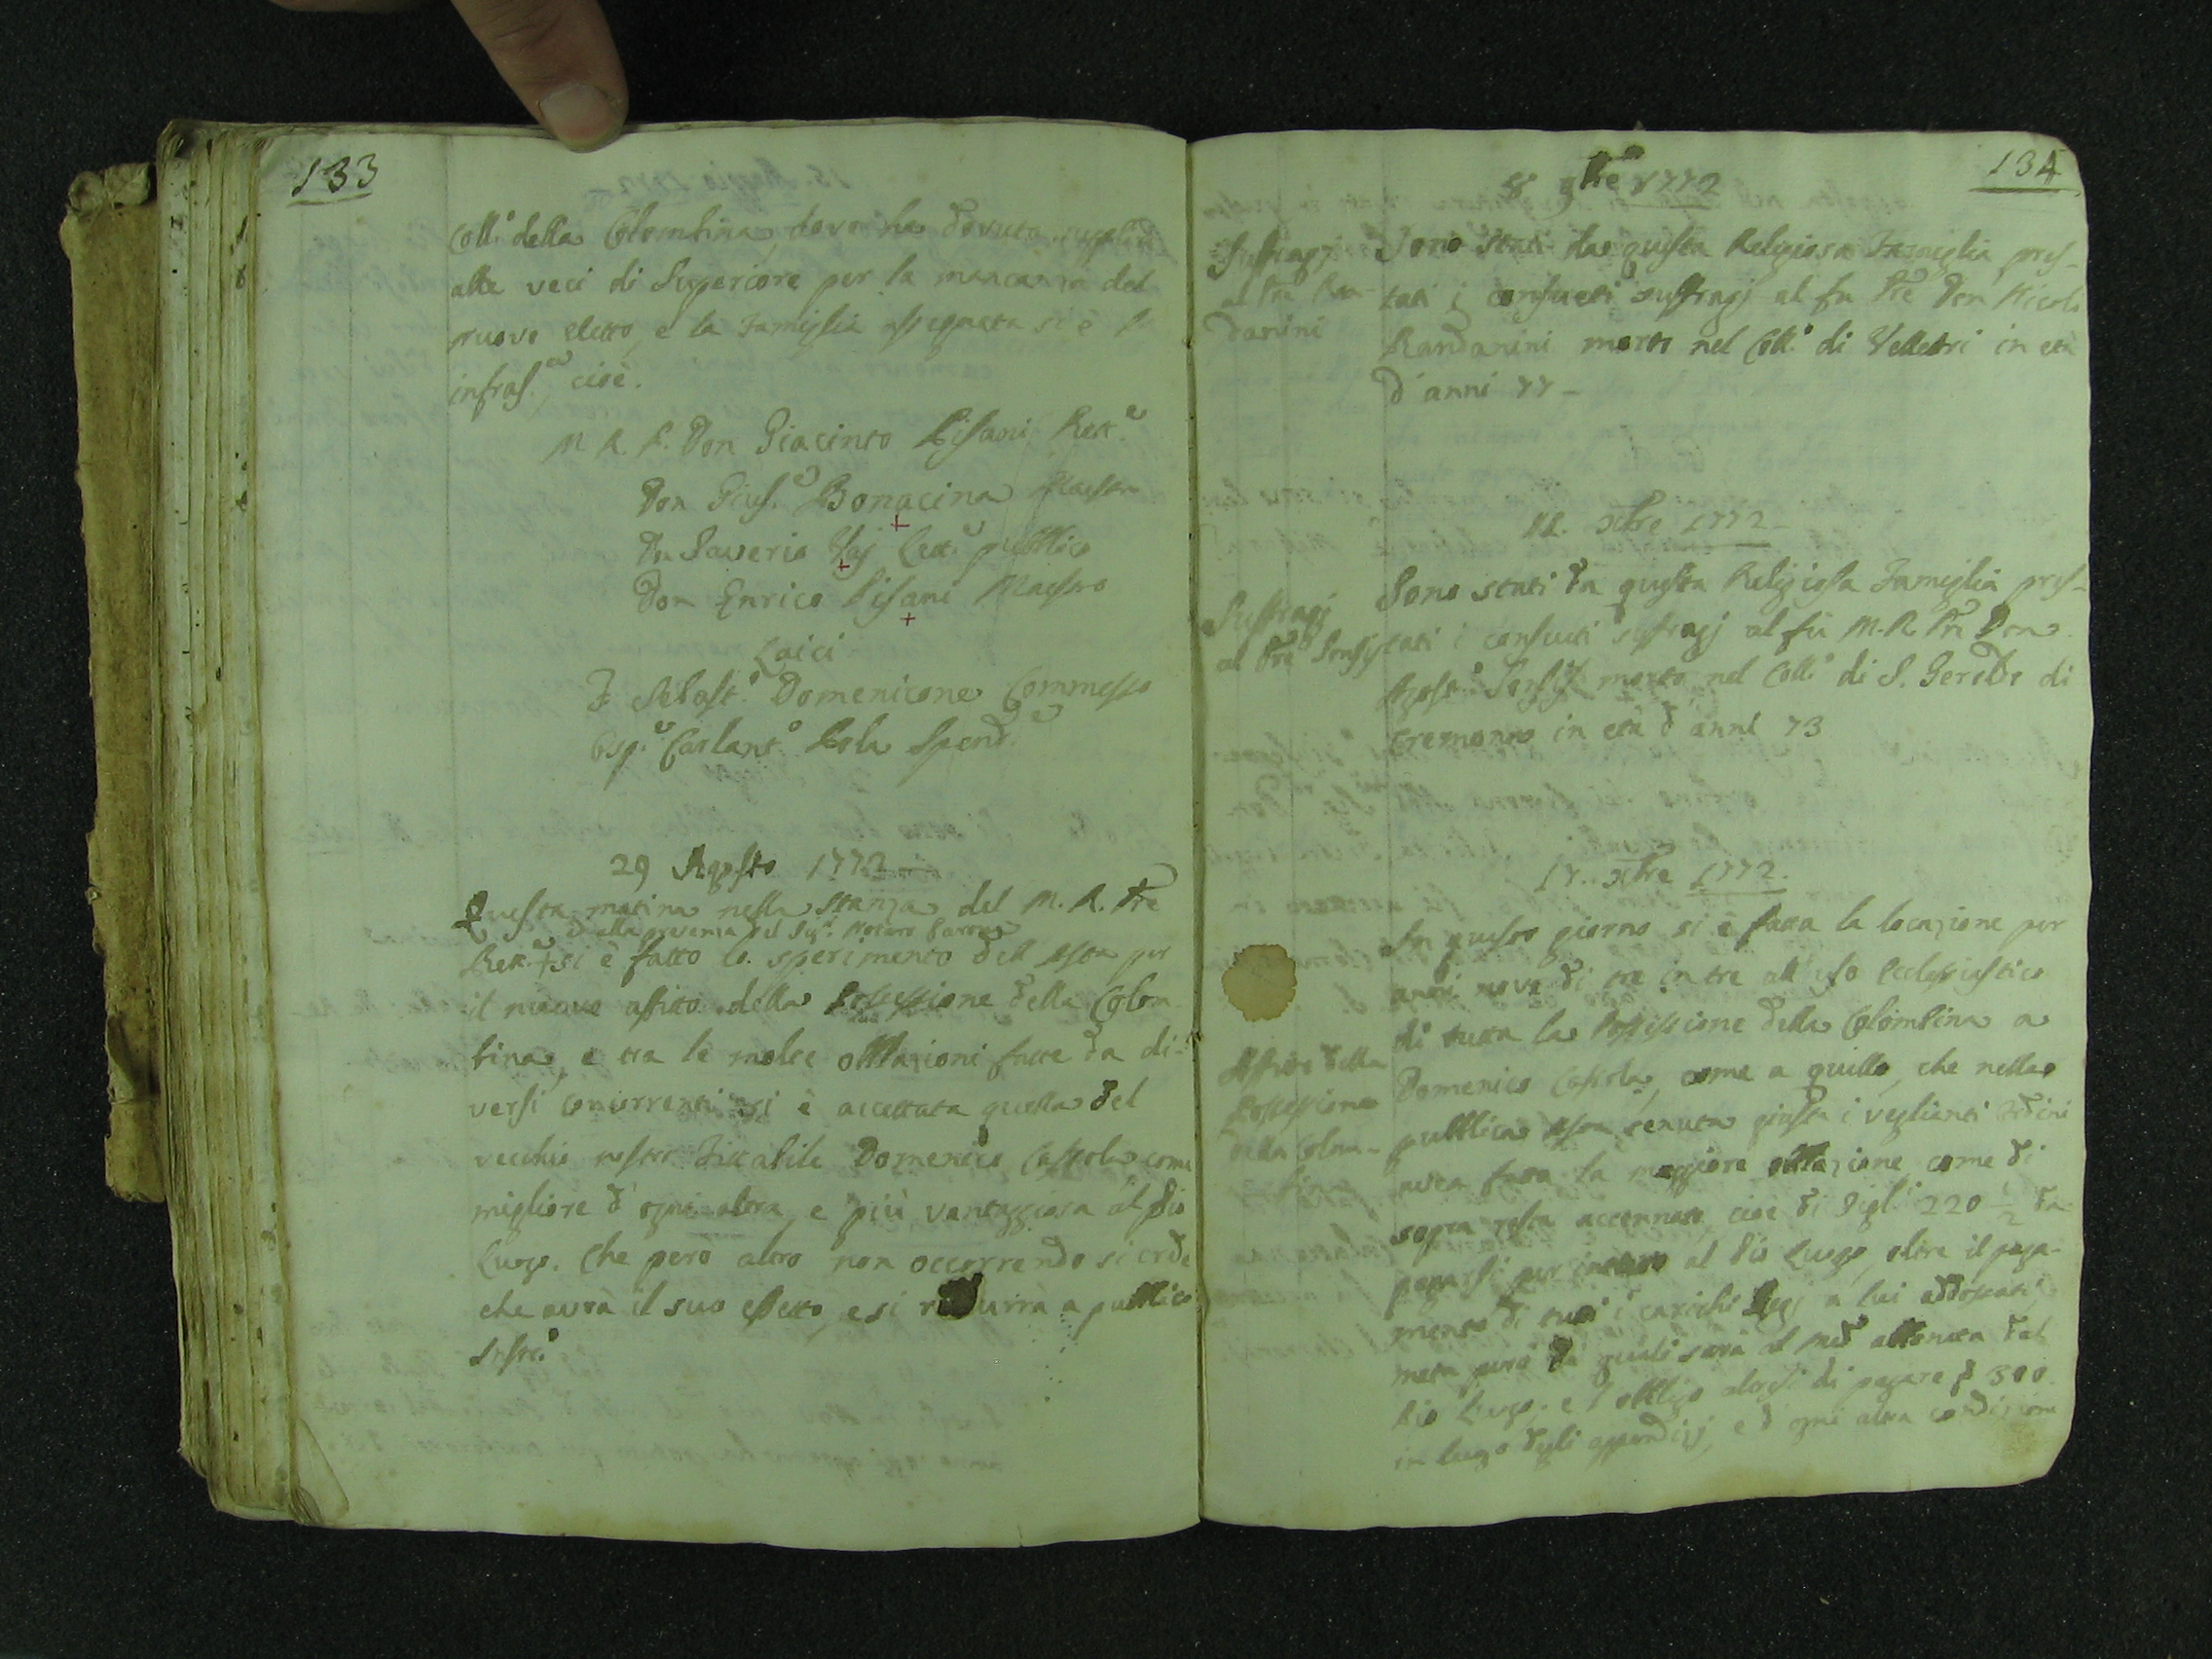 133
Coll.º della Colombina, dove ha dovuto supplire
alle veci di Superiore per la mancanza del
nuovo eletto, e la Famiglia assegnata si è
infras.ª, cioè.
M R P. Don Giacinto Pisani Rett.e
Don Gius.e Bonacina Maestro
Dn Saverio Vaj Lett.e pubblico
Don Enrico Pisani Maestro
Laici
F Sebast.º Domenicone Commesso
Osp.e Carlant.º Pola Spend.e
29 Agosto 1772
Questa matina nella stanza del M. R. Pre
ed alla presenza del Sig.r Notaro
Rett.e + si è fatto lo sperimento dell'Asta per
il nuovo affitto della Possessione della Colom
bina, e tra le molte obblazioni fatte da di-
versi concorrenti si è accettata quella del
vecchio nostro Fittabile Domenico Cassola come
migliore d'ogni altra, e più vantaggiosa al Pio
Luogo. Che però altro non occorrendo si crede
che avrà il suo effetto, e si ridurrà a pubblico
Instr.º
134
8 9bre 1772
Suffragj
al Pre Ran
danini
Sono stati da questa Religiosa Famiglia pres-
tati i consueti suffragj al fu Pre Don Nicolò
Randanini morto nel Coll.º di Velletri in età
d'anni 77 -
12. Xbre 1772
Suffragj
al Pre
Sono stati da questa Religiosa Famiglia pres-
tati i consueti suffragj al fu M. R. Pre Don
Agost.º morto nel Coll.º di S. Gerol.mo di
Cremona in età d'anni 73
17. Xbre 1772.
Affitto della
Possessione
della Colom-
bina
In questo giorno si è fatta la locazione per
anni nove di tre in tre all'uso Ecclesiastico
di tutta la Possessione della Colombina a
Domenico Cassola, come a quello, che nella
pubblica Asta tenuta giusta i veglianti Ordini
avea fatta la maggiore obblazione, come di
sopra resta accennato, cioè di Gigl.i 220 1/2 da
pagarsi per intiero al Pio Luogo, oltre il paga-
mento di tutti i carichi Regj a lui addossati,
metà però de' quali sarà al med.º abbonata dal
Pio Luogo, e l'obbligo altresì di pagare £ 300
in luogo degli appendizj, e d'ogni altra condizione